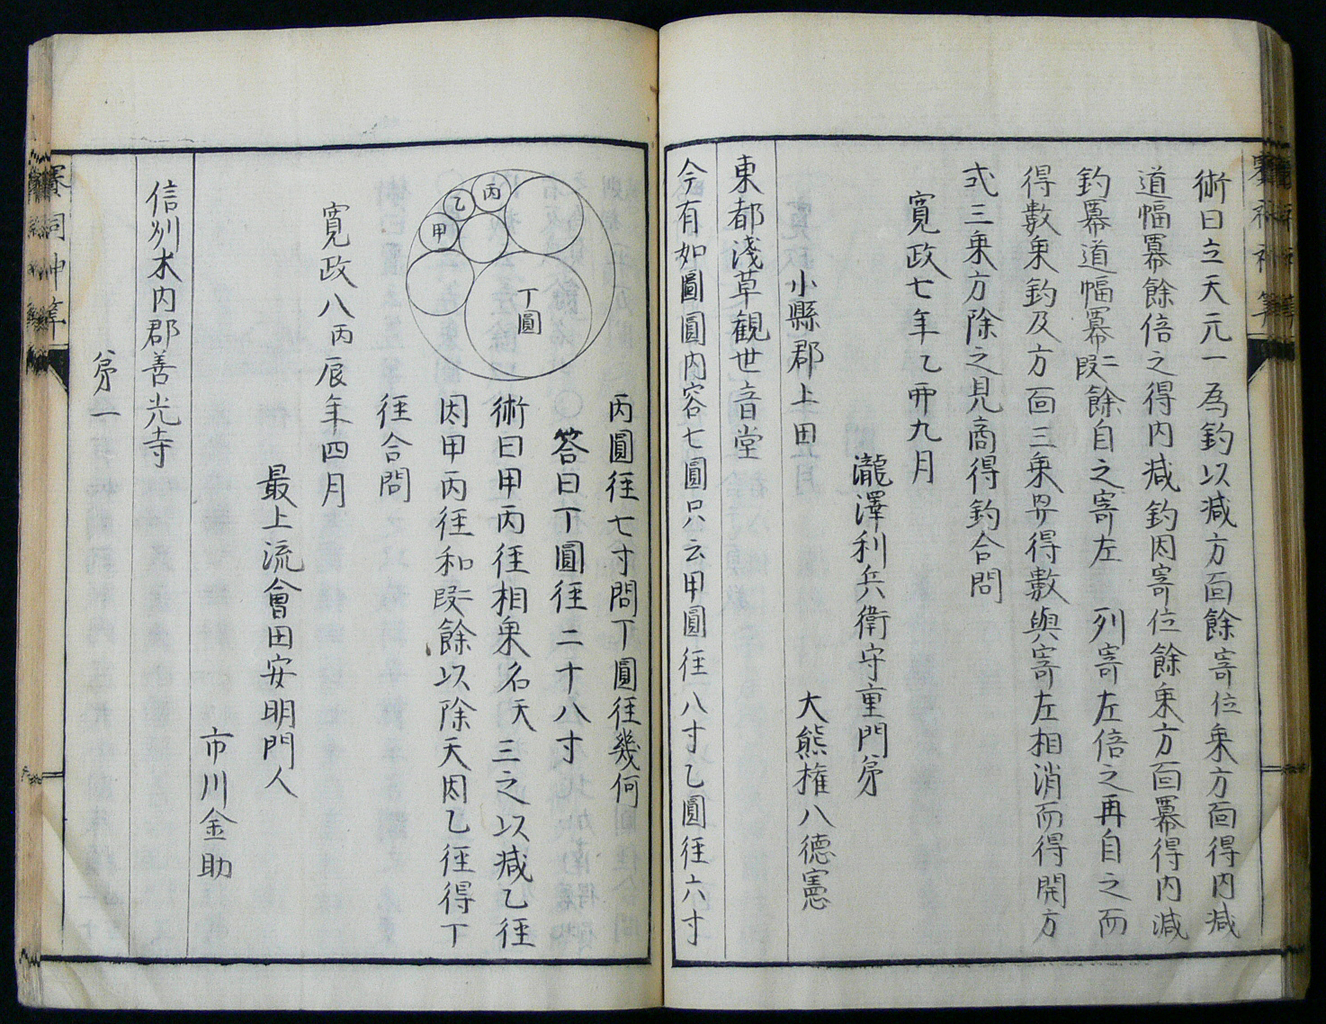 術曰立天元一為鈎以減方面餘寄位乗方面得内減
道幅冪餘倍之得内減鈎因寄位餘乗方面冪得内減
鈎冪道幅冪二段餘自之寄左 列寄左倍之再自之而
得數乗鈎及方面三乗冪得數與寄左相消而得開方
式三乗方除之見商得鈎合問
寛政七年乙卯九月
瀧澤利兵衛守重門弟
小縣郡上田 大熊権八徳憲
東都淺草観世音堂
今有如圖圓内容七圓只云甲圓径八寸乙圓径六寸
丙圓径七寸問丁圓径幾何
答曰丁圓径二十八寸
術曰甲丙径相乗名天三之以減乙径
因甲丙径和二段餘以除天因乙径得丁
径合問
丙
乙
甲
丁圓
寛政八丙辰年四月
最上流會田安明門人
市川金助
信州水内郡善光寺
弟一